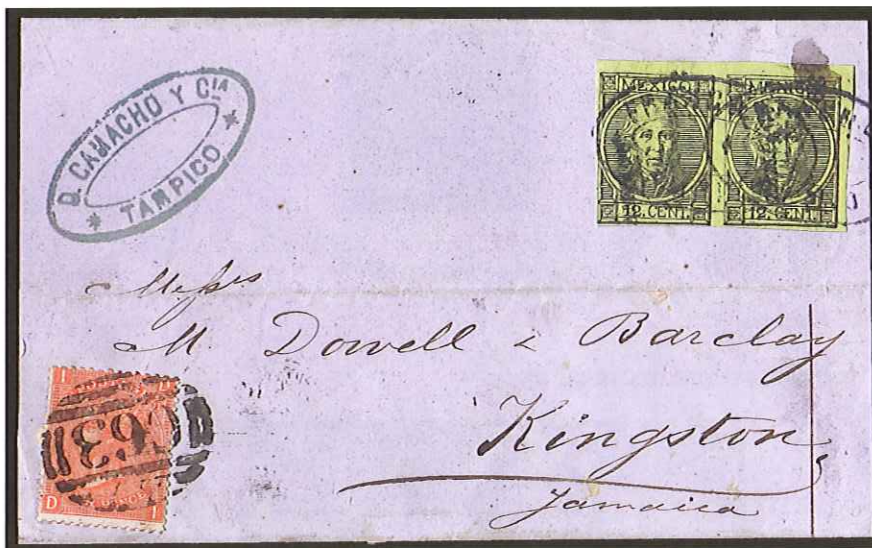 D. CAMACHO Y CIA
TAMPICO
MEXICO
12. CENT.
12. CENT.
Messrs
M Dowell & Barclay
Kingston
Jamaica
C63
D I